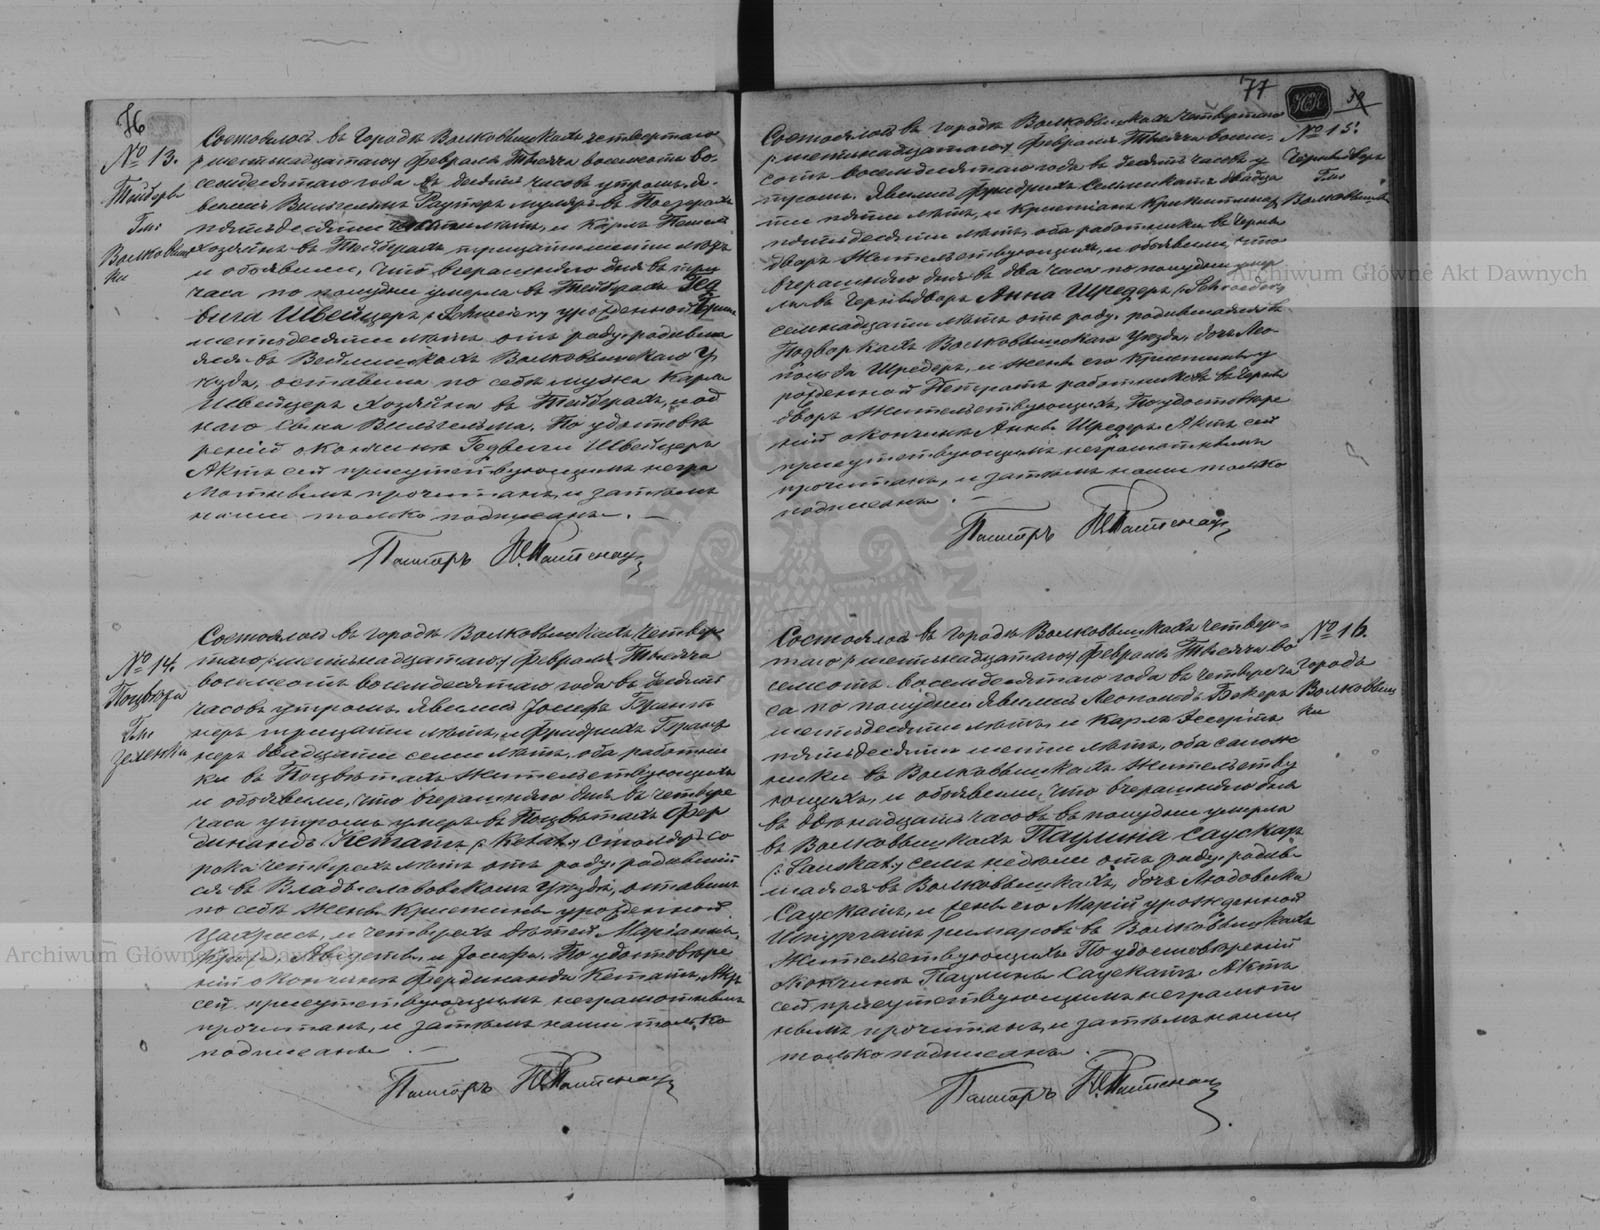 76
№ 13.
Тейберы
Гм:
Волковыш
ки
Состоялось въ городѣ Волковышкахъ четвертаго
/:шестьнадцатаго:/ февраля тысяча восемьсотъ во-
семдесятаго года въ десять часовъ утромъ. Я-
вились Вильгельмъ муляръ въ
пятьдесяти лѣтъ, и Карлъ
хозяинъ въ Тейберахъ, тридцати шести лѣтъ
и объявили, что вчерашняго дня въ три
часа по полудни умерла въ Тейберахъ Гед
вига Швейцеръ /:Schweizer:/ урожденной
шестьдесяти лѣтъ отъ роду, родивша
яся въ Волковышскаго У
ѣзда, оставила по себѣ мужа Карла
Швейцеръ хозяина въ Тейберахъ, и од
наго сына Вильгельма. По удостовѣ
реніи о кончинѣ Гедвиги Швейцеръ
Актъ сей присутствующимъ негра
мотнымъ прочитанъ, и затѣмъ
нами только подписанъ. —
Пасторъ
№ 14.
Поцвѣты
Гм:
Зеленки
Состоялось въ городѣ Волковышкахъ четвер-
таго /:шестьнадцатаго:/ февраля тысяча
восемьсотъ восемдесятаго года въ десять
часовъ утромъ. Явились Іосифъ
неръ тридцати лѣтъ, и Фридрихъ
неръ двадцати семи лѣтъ, оба работни
ки въ Поцвѣтахъ жительствующіе
и объявили, что вчерашняго дня въ четыре
часа утромъ умеръ въ Поцвѣтахъ Фер
динандъ Кетатъ /:Ketat:/ столяръ со
рока четырехъ лѣтъ отъ роду, родившій
ся въ Владыславовскомъ уѣздѣ, оставивъ
по себѣ жену Кристину урожденной
и четырехъ дѣтей Маріанну,
и Іосифа. По удостовѣре
ніи о кончинѣ Фердинанда Кетатъ, Актъ
сей присутствующимъ неграмотнымъ
прочитанъ, и затѣмъ нами только
подписанъ. —
Пасторъ
77
№ 15.
Гм:
Волковышки
Состоялось въ городѣ Волковышкахъ четвертаго
/:шестьнадцатаго:/ февраля тысяча восемь-
сотъ восемдесятаго года въ десять часовъ у-
тромъ. Явились Фридрихъ двадца
ти пяти лѣтъ, и Кристіанъ
пятьдесяти лѣтъ, оба работники въ Черв
дворѣ жительствующіе, и объявили, что
вчерашняго дня въ два часа по полудни умер
ла въ Анна Шредеръ /:Schroeder:/
семнадцати лѣтъ отъ роду, родившаяся въ
Подворкахъ Волковышскаго Уѣзда, дочь Лео
польда Шредеръ, и жены его Кристины у
рожденной работниковъ въ
дворѣ жительствующихъ, По удостовѣре
ніи о кончинѣ Анны Шредеръ, Актъ сей
присутствующимъ неграмотнымъ
прочитанъ, и затѣмъ нами только
подписанъ. —
Пасторъ
№ 16.
Городъ
Волковыш
ки
Состоялось въ городѣ Волковышкахъ четвер-
таго /:шестьнадцатаго:/ февраля тысяча во
семьсотъ восемдесятаго года въ четыре ча
са по полудни. Явились Леопольдъ Бекеръ
шестьдесяти лѣтъ, и Карлъ
пятьдесяти шести лѣтъ, оба сапож
ники въ Волковышкахъ жительству
ющіе, и объявили, что вчерашняго дня
въ двѣнадцать часовъ въ полудни умерла
въ Волковышкахъ Паулина Саускатъ
/:Sauskat:/ семь недѣль отъ роду, родив-
шаяся въ Волковышкахъ, дочь Людовика
Саускатъ, и жены его Маріи урожденной
римаровъ въ Волковышкахъ
жительствующихъ. По удостовѣреніи
о кончинѣ Паулины Саускатъ, Актъ
сей присутствующимъ неграмот
нымъ прочитанъ, и затѣмъ нами
только подписанъ. —
Пасторъ
Archiwum Główne Akt Dawnych
Archiwum Główne Akt Dawnych